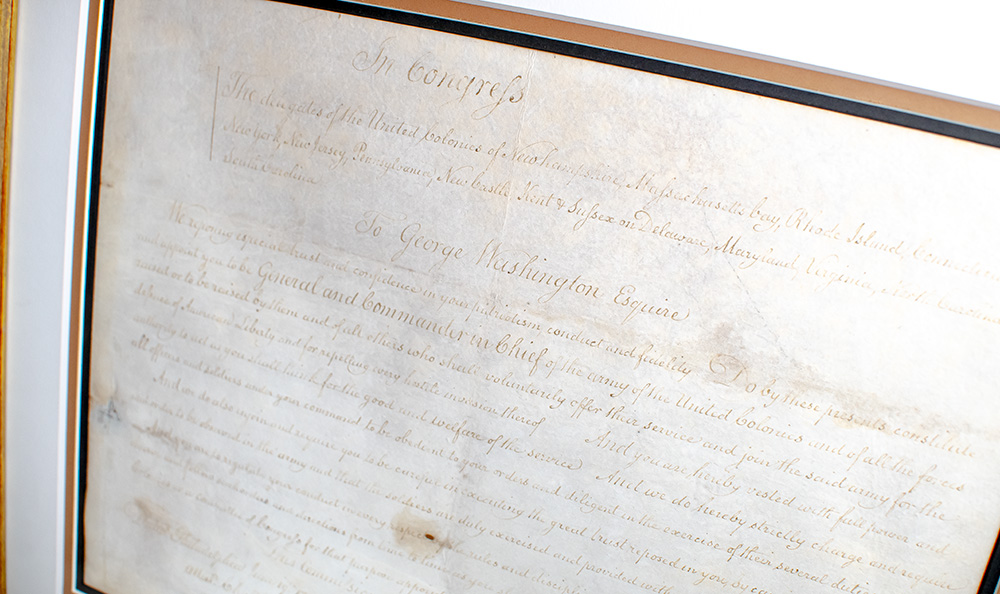 In Congress
The delegates of the United Colonies of New hampshire, Massachusetts bay, Rhode Island, Connecticut
New York, New Jersey, Pennsylvania, New Castle Kent & Sussex on Delaware, Maryland, Virginia, North Carolina
South Carolina
To George Washington Esquire
We reposing especial trust and confidence in your patriotism, conduct and fidelity Do by these presents constitute
and appoint you to be General and Commander in Chief of the army of the United Colonies and of all the forces
raised or to be raised by them and of all others who shall voluntarily offer their service and join the said army for the
defence of American Liberty and for repelling every hostile invasion thereof And you are hereby vested with full power and
authority to act as you shall think for the good and welfare of the service And we do hereby strictly charge and require
all officers and soldiers under your command to be obedient to your orders and diligent in the exercise of their several duties
And we do also enjoin and require you to be careful in executing the great trust reposed in you, by causing
and order to be observed in the army and that the soldiers are duly exercised and provided with
regulate your conduct in every respect by the rules and discipline
orders and directions from time to time as you
committee of Congress for that purpose appoi
Philadelphia June